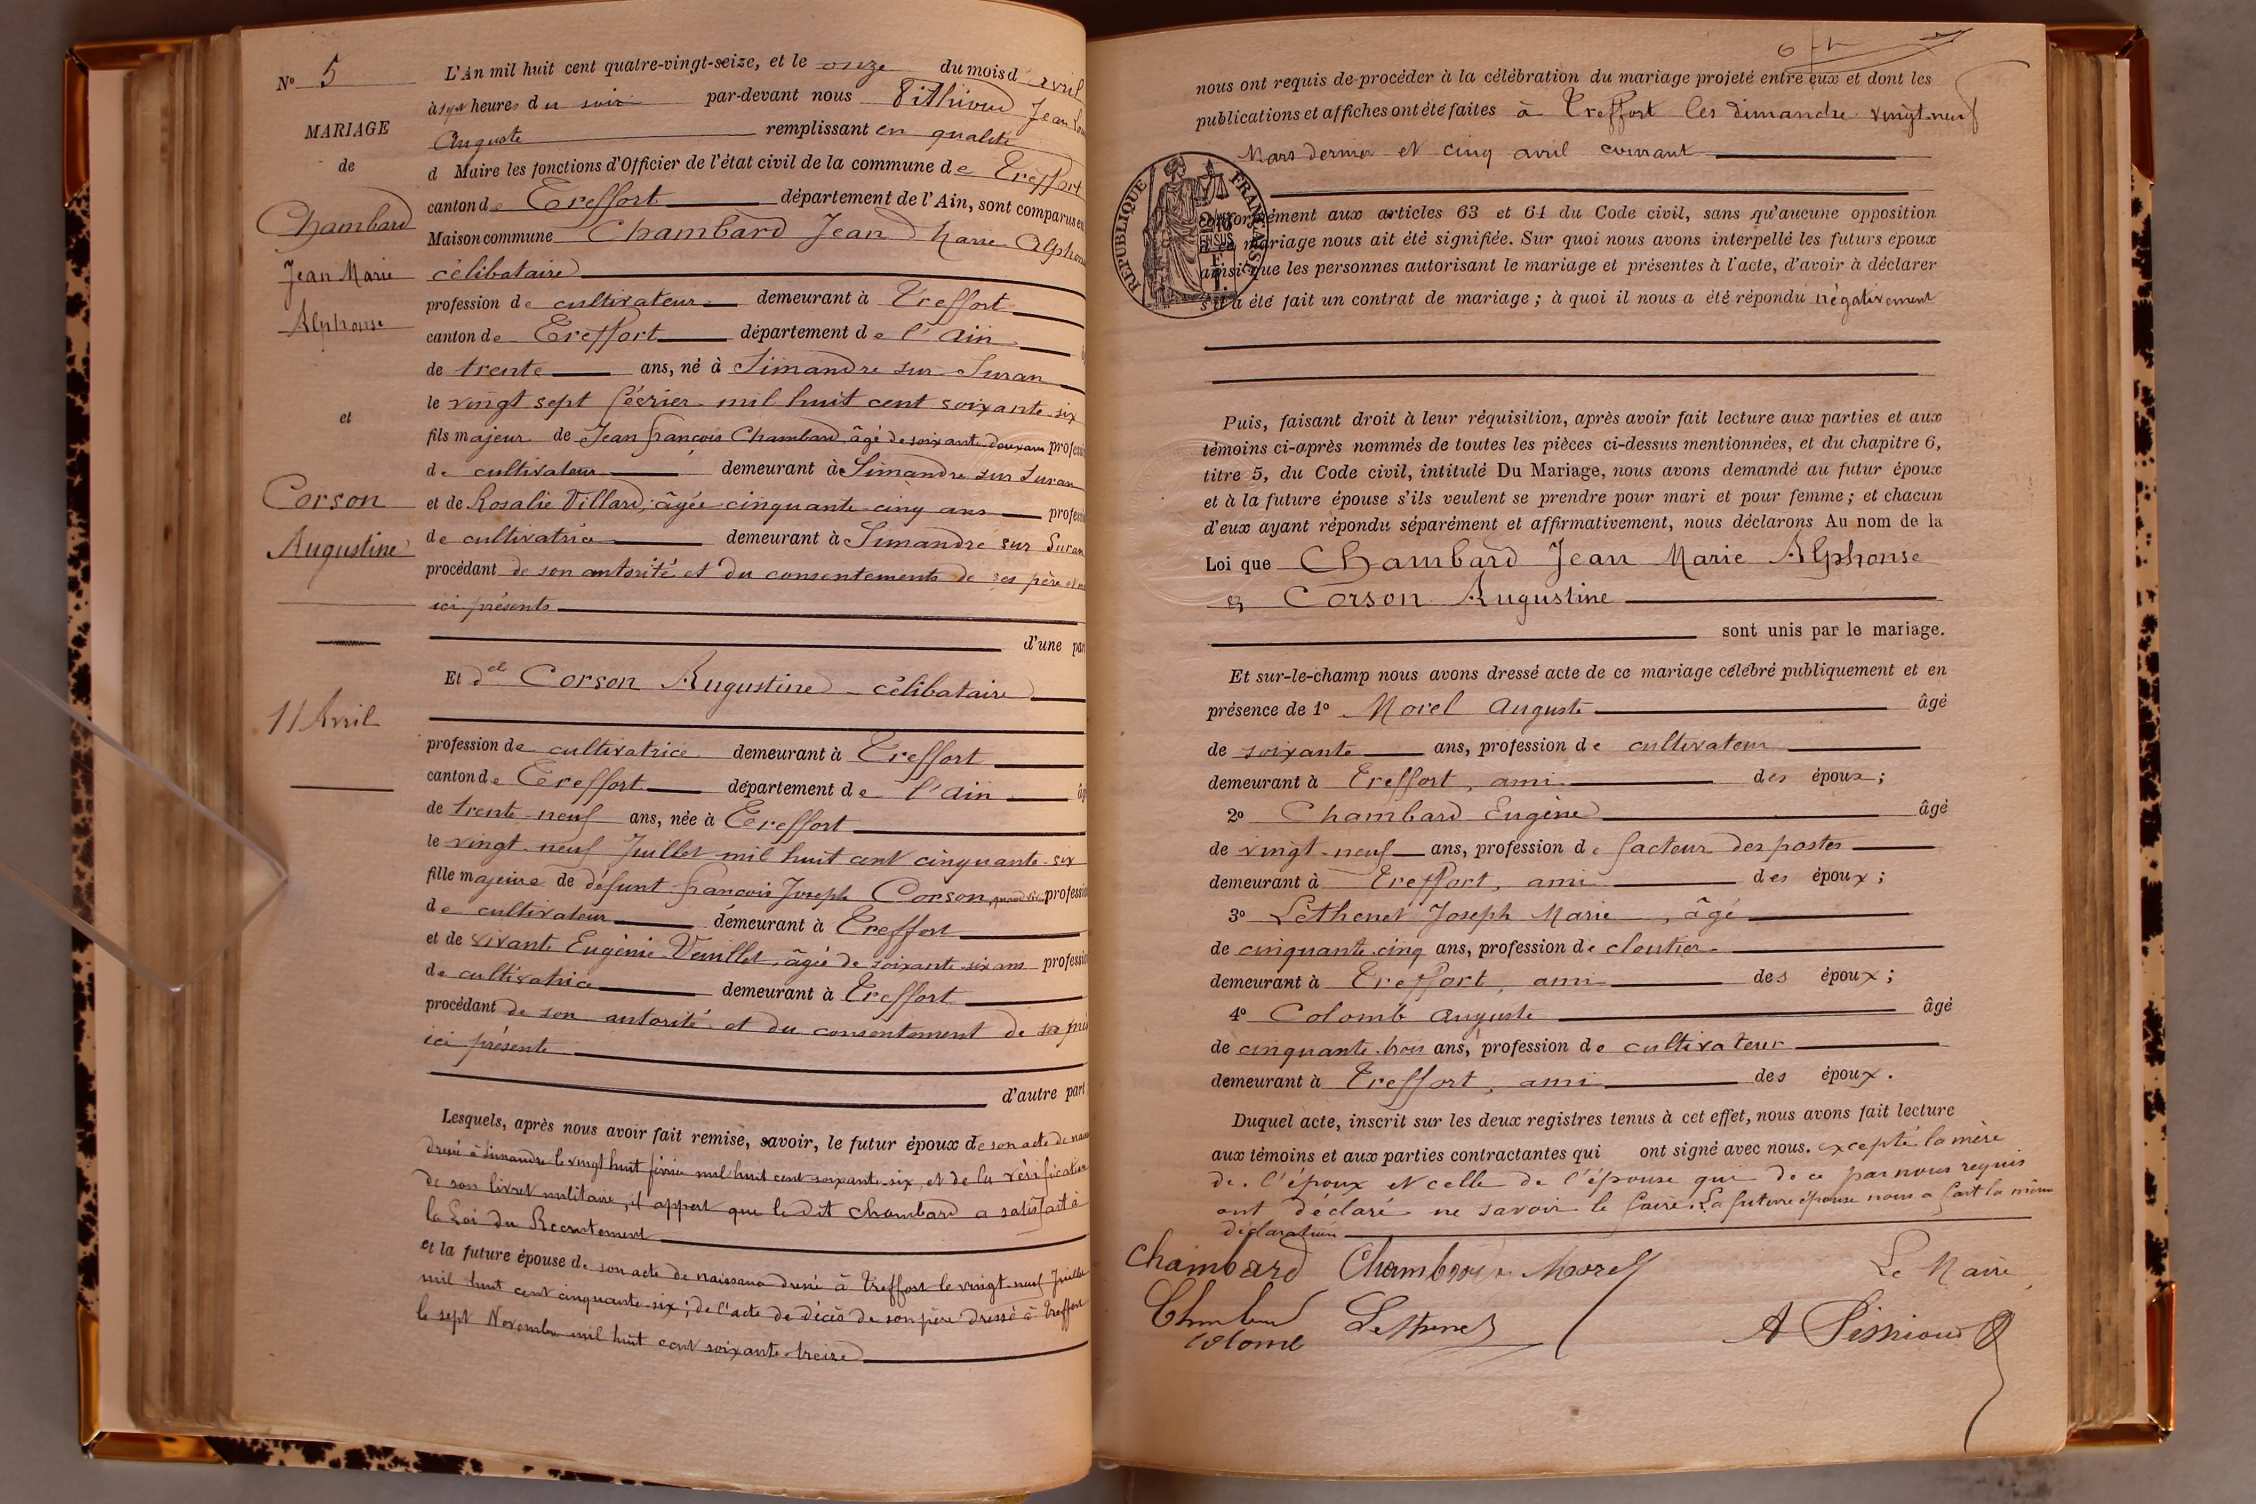 N° 5
MARIAGE
de
Chambard
Jean Marie
Alphonse
et
Corson
Augustine
11 Avril
L'An mil huit cent quatre-vingt-seize, et le onze du mois d avril
à sept heures du soir par-devant nous Jean
Auguste remplissant en qualité
d Maire les fonctions d'Officier de l'état civil de la commune de Treffort
canton de Treffort département de l'Ain, sont comparus en
Maison commune Chambard Jean Marie Alphonse
célibataire
profession de cultivateur demeurant à Treffort
canton de Treffort département de l'Ain
de trente ans, né à Simandre sur Suran
le vingt sept février mil huit cent soixante six
fils majeur de Jean françois Chambard, âgé de soixante-douze ans profession
de cultivateur demeurant à Simandre sur Suran
et de Rosalie Villard, âgée cinquante cinq ans profession
de cultivatrice demeurant à Simandre sur Suran
procédant de son autorité et du consentement de ses père et
ici présents
d'une part
Et delle Corson Augustine célibataire
profession de cultivatrice demeurant à Treffort
canton de Treffort département de l'Ain
de trente-neuf ans, née à Treffort
le vingt-neuf Juillet mil huit cent cinquante-six
fille majeure de défunt françois Joseph Corson, quand vivait profession
de cultivateur demeurant à Treffort
et de vivante Eugénie Veuillet, âgée de soixante-six ans profession
de cultivatrice demeurant à Treffort
procédant de son autorité et du consentement de sa mère
ici présente
d'autre part
Lesquels, après nous avoir fait remise, savoir, le futur époux de son acte de
dressé à Simandre le vingt huit février mil huit cent soixante-six, et de la vérification
de son livret militaire, il appert que le dit Chambard a satisfait à
la Loi du Recrutement
et la future épouse de son acte de naissance dressé à Treffort le vingt-neuf Juillet
mil huit cent cinquante-six; de l'acte de décès de son père dressé à Treffort
le sept Novembre mil huit cent soixante-treize
nous ont requis de procéder à la célébration du mariage projeté entre eux et dont les
publications et affiches ont été faites à Treffort les dimanche vingt-neuf
Mars dernier et cinq avril courant
RÉPUBLIQUE FRANÇAISE
conformément aux articles 63 et 64 du Code civil, sans qu'aucune opposition
à ce mariage nous ait été signifiée. Sur quoi nous avons interpellé les futurs époux
ainsi que les personnes autorisant le mariage et présentes à l'acte, d'avoir à déclarer
s'il a été fait un contrat de mariage ; à quoi il nous a été répondu négativement
Puis, faisant droit à leur réquisition, après avoir fait lecture aux parties et aux
témoins ci-après nommés de toutes les pièces ci-dessus mentionnées, et du chapitre 6,
titre 5, du Code civil, intitulé Du Mariage, nous avons demandé au futur époux
et à la future épouse s'ils veulent se prendre pour mari et pour femme ; et chacun
d'eux ayant répondu séparément et affirmativement, nous déclarons Au nom de la
Loi que Chambard Jean Marie Alphonse
et Corson Augustine
sont unis par le mariage.
Et sur-le-champ nous avons dressé acte de ce mariage célébré publiquement et en
présence de 1° Morel Auguste âgé
de soixante ans, profession de cultivateur
demeurant à Treffort, ami des époux ;
2° Chambard Eugène âgé
de vingt-neuf ans, profession de facteur des postes
demeurant à Treffort, ami des époux ;
3° Léthenet Joseph Marie, âgé
de cinquante-cinq ans, profession de cloutier
demeurant à Treffort, ami des époux ;
4° Colomb Auguste âgé
de cinquante-trois ans, profession de cultivateur
demeurant à Treffort, ami des époux.
Duquel acte, inscrit sur les deux registres tenus à cet effet, nous avons fait lecture
aux témoins et aux parties contractantes qui ont signé avec nous. excepté la mère
de l'époux et celle de l'épouse qui de ce par nous requis
ont déclaré ne savoir le faire. La future épouse nous a fait la même
déclaration
Chambard Chambard Morel Le Maire,
Lethenet
Colomb